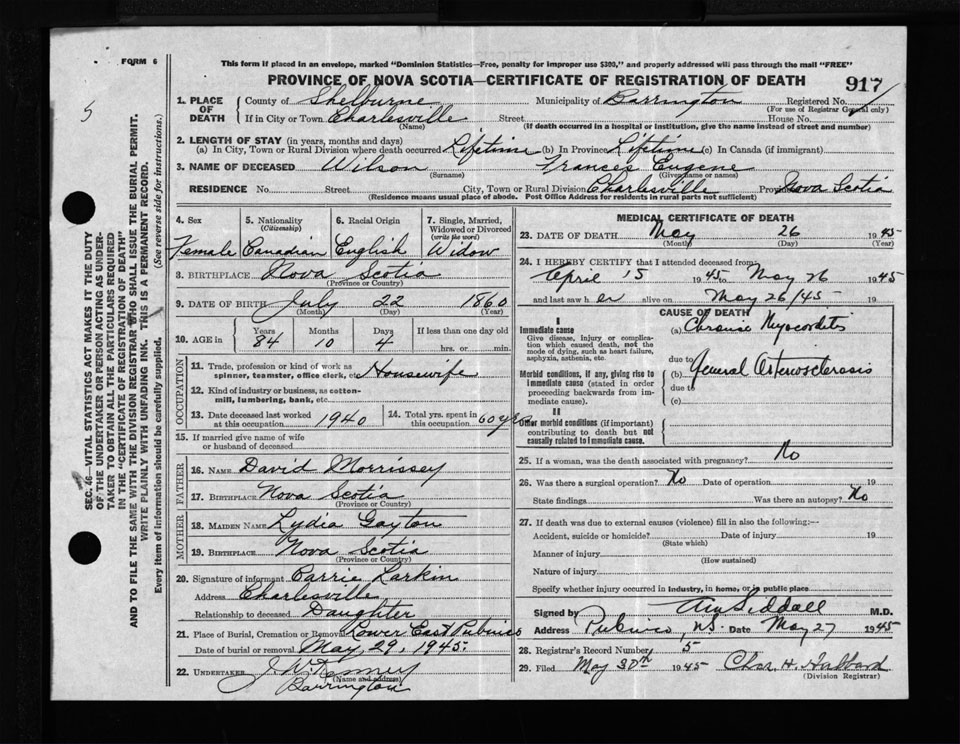 FORM 6
This form if placed in an envelope, marked "Dominion Statistics—Free, penalty for improper use $300," and properly addressed will pass through the mail "FREE"
PROVINCE OF NOVA SCOTIA—CERTIFICATE OF REGISTRATION OF DEATH
917
5
1. PLACE OF DEATH
County of Shelburne Municipality of Barrington Registered No.
(For use of Registrar General only)
If in City or Town Charlesville Street House No.
(Name) (If death occurred in a hospital or institution, give the name instead of street and number)
2. LENGTH OF STAY (in years, months and days)
(a) In City, Town or Rural Division where death occurred Lifetime (b) In Province Lifetime (c) In Canada (if immigrant)
3. NAME OF DECEASED Wilson Frances Eugene
(Surname) (Given name or names)
RESIDENCE No. Street City, Town or Rural Division Charlesville Prov. Nova Scotia
(Residence means usual place of abode. Post Office Address for residents in rural parts not sufficient)
4. Sex
Female
5. Nationality
(Citizenship)
Canadian
6. Racial Origin
English
7. Single, Married, Widowed or Divorced
(write the word)
Widow
8. BIRTHPLACE Nova Scotia
(Province or Country)
9. DATE OF BIRTH July 22 1860
(Month) (Day) (Year)
10. AGE in
Years Months Days If less than one day old
84 10 4 hrs. or min.
OCCUPATION
11. Trade, profession or kind of work as
spinner, teamster, office clerk, etc. Housewife
12. Kind of industry or business, as cotton-
mill, lumbering, bank, etc.
13. Date deceased last worked
at this occupation 1940
14. Total yrs. spent in
this occupation 60 yrs
15. If married give name of wife
or husband of deceased
FATHER
16. NAME David Morrissey
17. BIRTHPLACE Nova Scotia
(Province or Country)
MOTHER
18. MAIDEN NAME Lydia Gayton
19. BIRTHPLACE Nova Scotia
(Province or Country)
20. Signature of informant Carrie Larkin
Address Charlesville
Relationship to deceased Daughter
21. Place of Burial, Cremation or Removal Lower East Pubnico
Date of burial or removal May, 29, 1945.
22. UNDERTAKER
(Name and address)
Barrington
MEDICAL CERTIFICATE OF DEATH
23. DATE OF DEATH May 26 1945
(Month) (Day) (Year)
24. I HEREBY CERTIFY that I attended deceased from
April 15 1945 to May 26 1945
and last saw her alive on May 26/45 19
CAUSE OF DEATH
I
Immediate cause
Give disease, injury or complication which caused death, not the mode of dying, such as heart failure, asphyxia, asthenia, etc.
(a) Chronic Myocarditis
due to
Morbid conditions, if any, giving rise to immediate cause (stated in order proceeding backwards from immediate cause).
(b) General Arteriosclerosis
due to
(c)
II
Other morbid conditions (if important) contributing to death but not causally related to immediate cause.
25. If a woman, was the death associated with pregnancy? No
26. Was there a surgical operation? No Date of operation 19
State findings Was there an autopsy? No
27. If death was due to external causes (violence) fill in also the following:—
Accident, suicide or homicide? Date of injury 19
(State which)
Manner of injury
(How sustained)
Nature of injury
Specify whether injury occurred in industry, in home, or in public place
Signed by Siddall M.D.
Address Pubnico, N.S. Date May 27 1945
28. Registrar's Record Number 5
29. Filed May 30th 1945 Chas. H. Hubbard
(Division Registrar)
SEC. 46—VITAL STATISTICS ACT MAKES IT THE DUTY
OF THE UNDERTAKER OR PERSON ACTING AS UNDER-
TAKER TO OBTAIN ALL THE PARTICULARS REQUIRED
IN THE "CERTIFICATE OF REGISTRATION OF DEATH"
AND TO FILE THE SAME WITH THE DIVISION REGISTRAR WHO SHALL ISSUE THE BURIAL PERMIT.
WRITE PLAINLY WITH UNFADING INK. THIS IS A PERMANENT RECORD.
Every item of information should be carefully supplied. (See reverse side for instructions.)